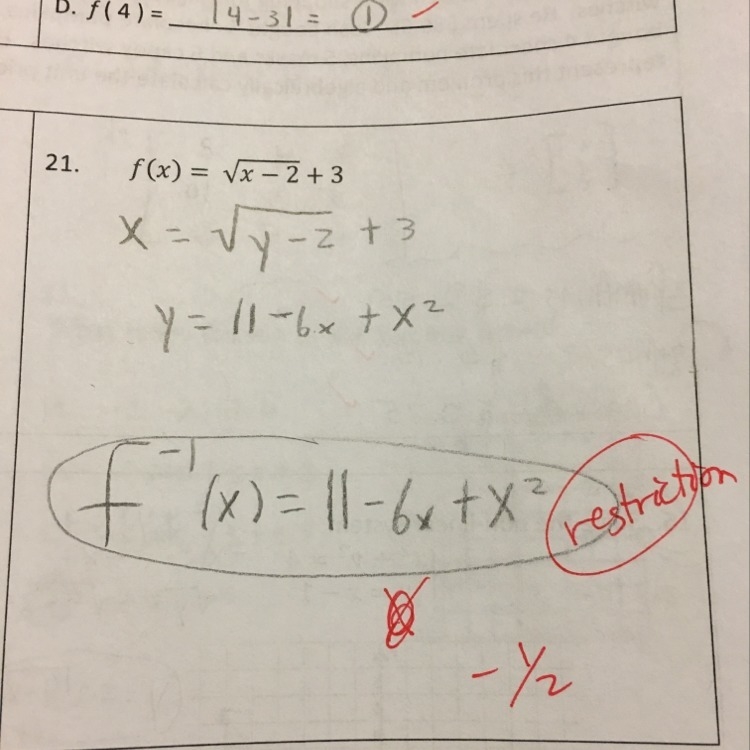 D. f(4) = |4-3| = ①
21. f(x) = √x − 2 + 3
x = √y - 2 + 3
y = 11 - 6x + x²
f⁻¹(x) = 11 - 6x + x² restriction
- 1/2